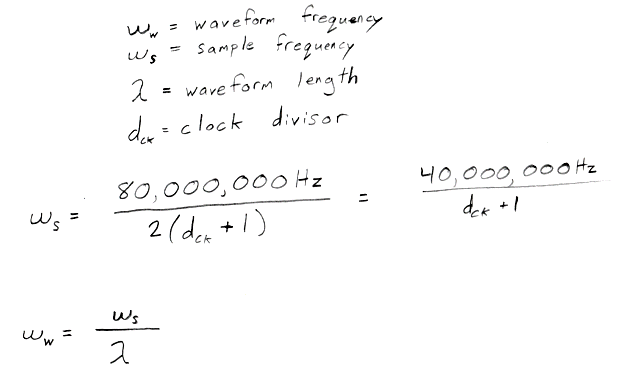 ω_w = waveform frequency
ω_s = sample frequency
λ = waveform length
d_ck = clock divisor
ω_s = 80,000,000 Hz / 2(d_ck + 1) = 40,000,000 Hz / d_ck + 1
ω_w = ω_s / λ